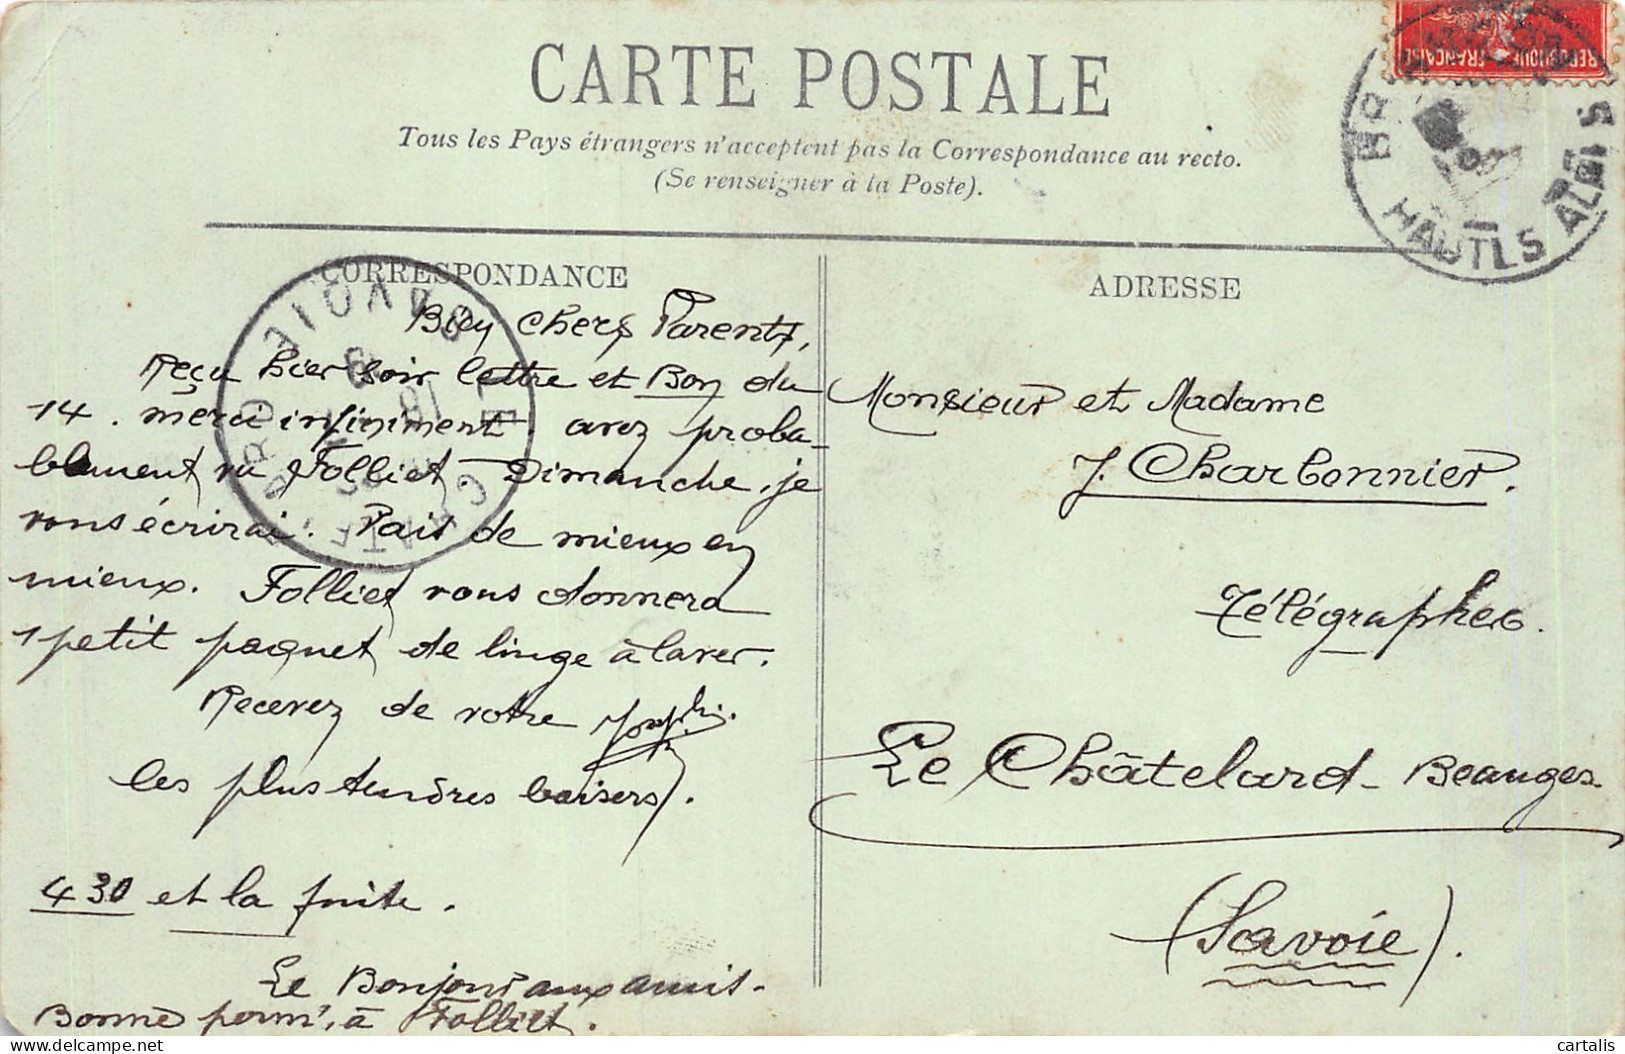 CARTE POSTALE
Tous les Pays étrangers n'acceptent pas la Correspondance au recto.
(Se renseigner à la Poste).
REPUBLIQUE FRANÇAISE
HAUTES ALPES
CORRESPONDANCE
Bien chers Parents,
Reçu hier soir lettre et Bon du
14. merci infiniment avez proba-
blement vu Folliet. Dimanche, je
vous écrirai. Vais de mieux en
mieux. Folliet vous donnera
1 petit paquet de linge à laver.
Recevez de votre
les plus tendres baisers.
430 et la fuite.
Le Bonjour aux amis.
Bonne perm', à Folliet.
LE CHATELARD
SAVOIE
ADRESSE
Monsieur et Madame
J. Charbonnier.
Télégraphes.
Le Châtelard - Beauges.
(Savoie).
cartalis
delcampe.net